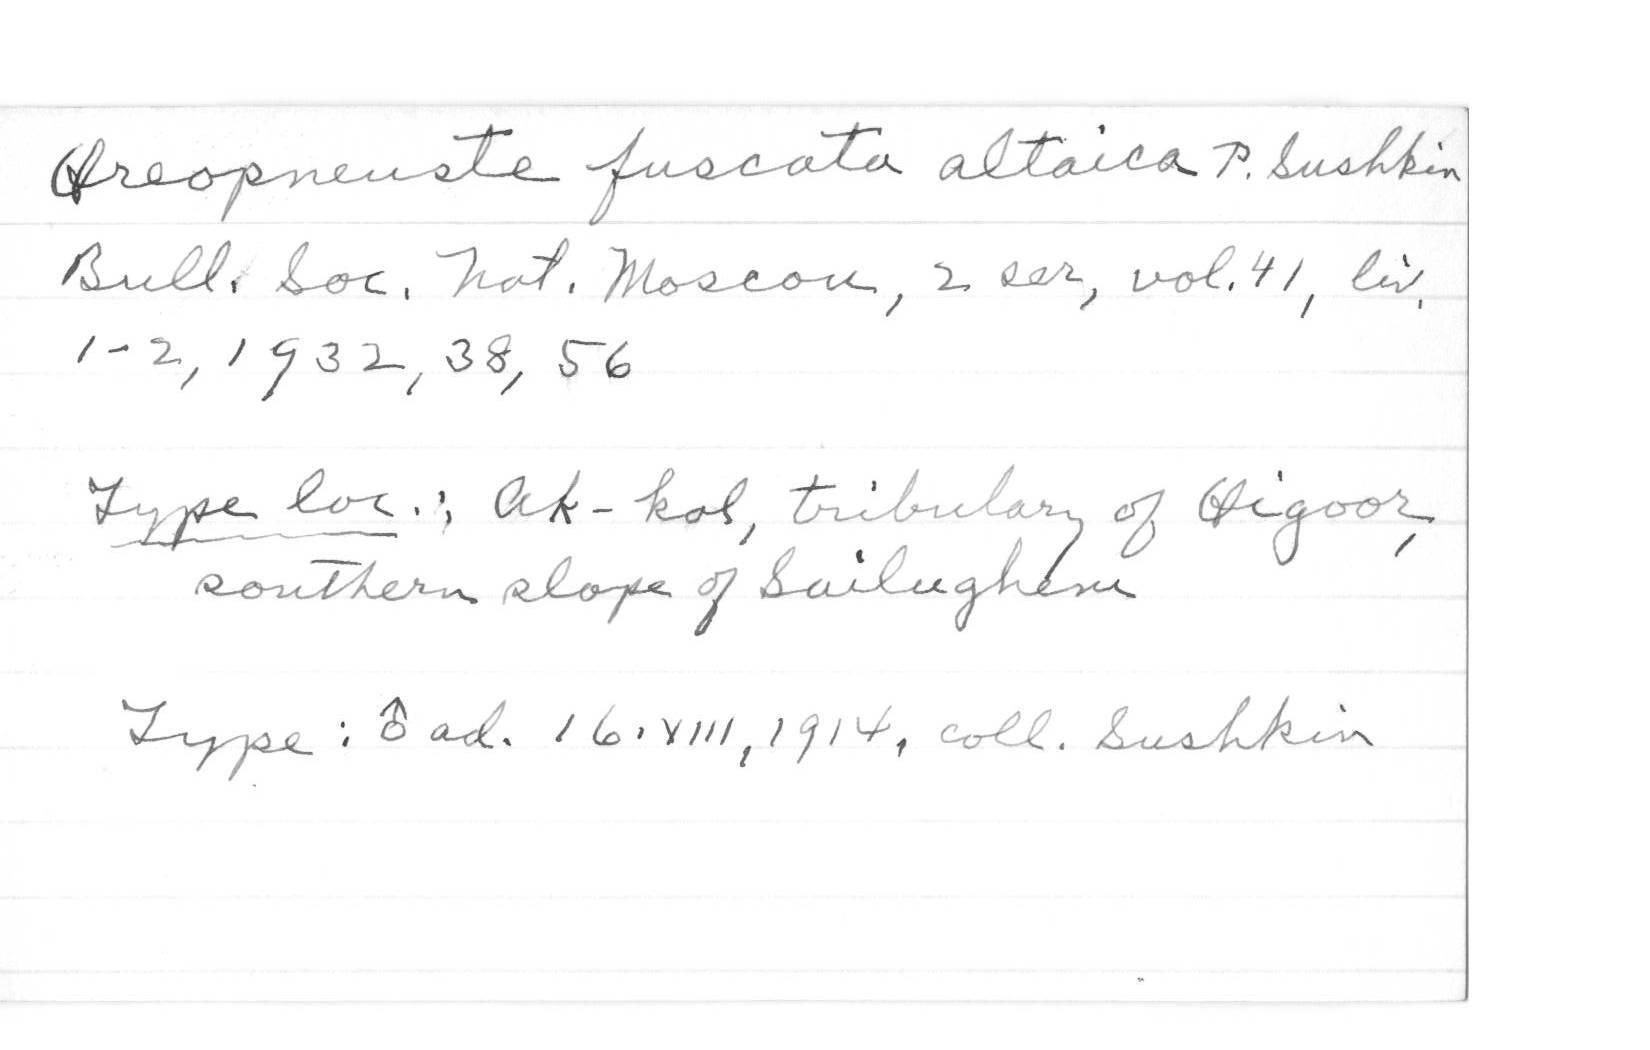 Oreopneuste fuscata altaica P. Sushkin
Bull. Soc. Nat. Moscou, 2 ser, vol. 41, liv.
1-2, 1932, 38, 56
Type loc.: Ak-kol, tributary of Oigoor,
southern slope of Sailughem
Type: ♂ ad. 16.VIII, 1914, coll. Sushkin